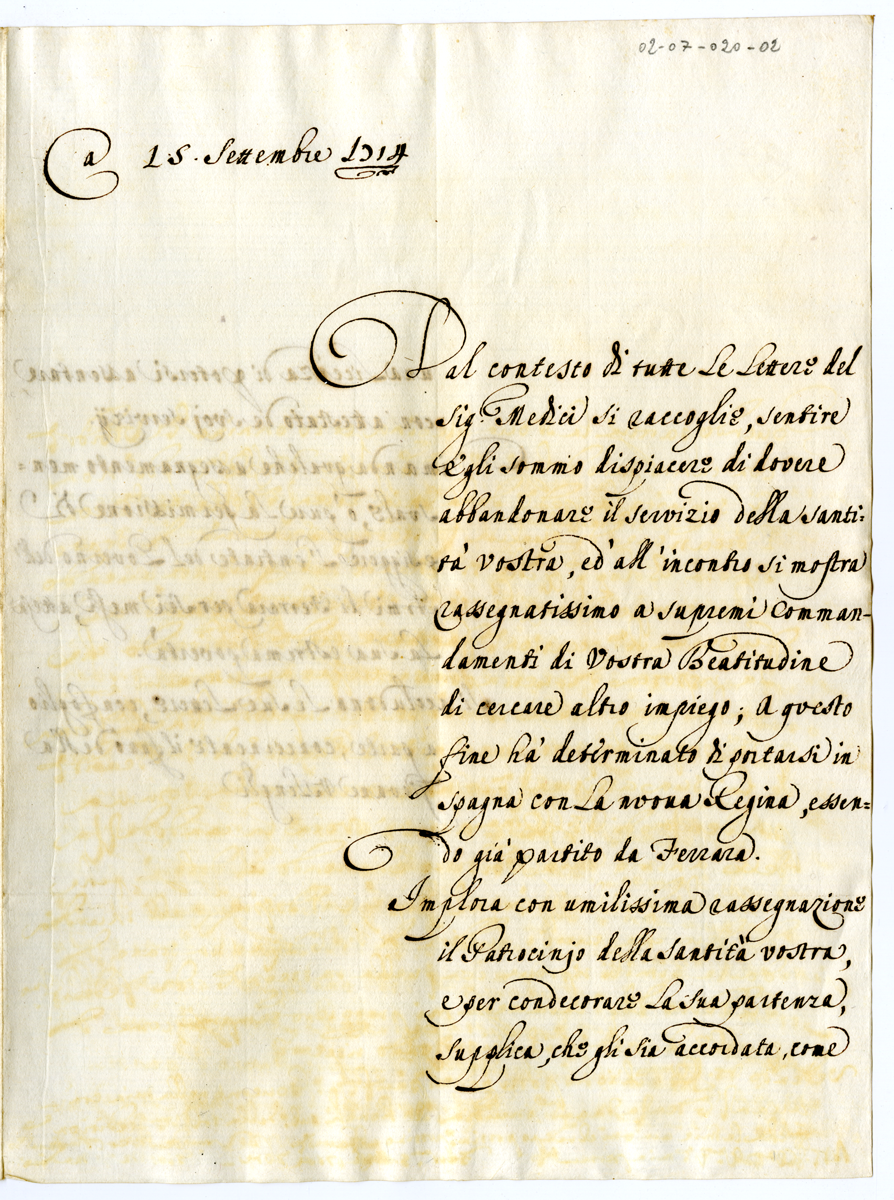 02-07-020-02
a 15. Settembre 1714
Dal contesto di tutte Le Lettere del
Sig.r Medici si raccoglie, sentire
egli sommo dispiacere di dovere
abbandonare il servizio della santi=
tà vostra, ed' all'incontro si mostra
rassegnatissimo a supremi Comman-
damenti di Vostra Beatitudine
di cercare altro impiego; A questo
fine hà determinato di portarsi in
spagna con La nuova Regina, essen=
do già partito da Ferrara.
Implora con umilissima rassegnazione
il Patrocinio della santità vostra,
e per condecorare La sua partenza,
supplica, che gli sia accordata, come